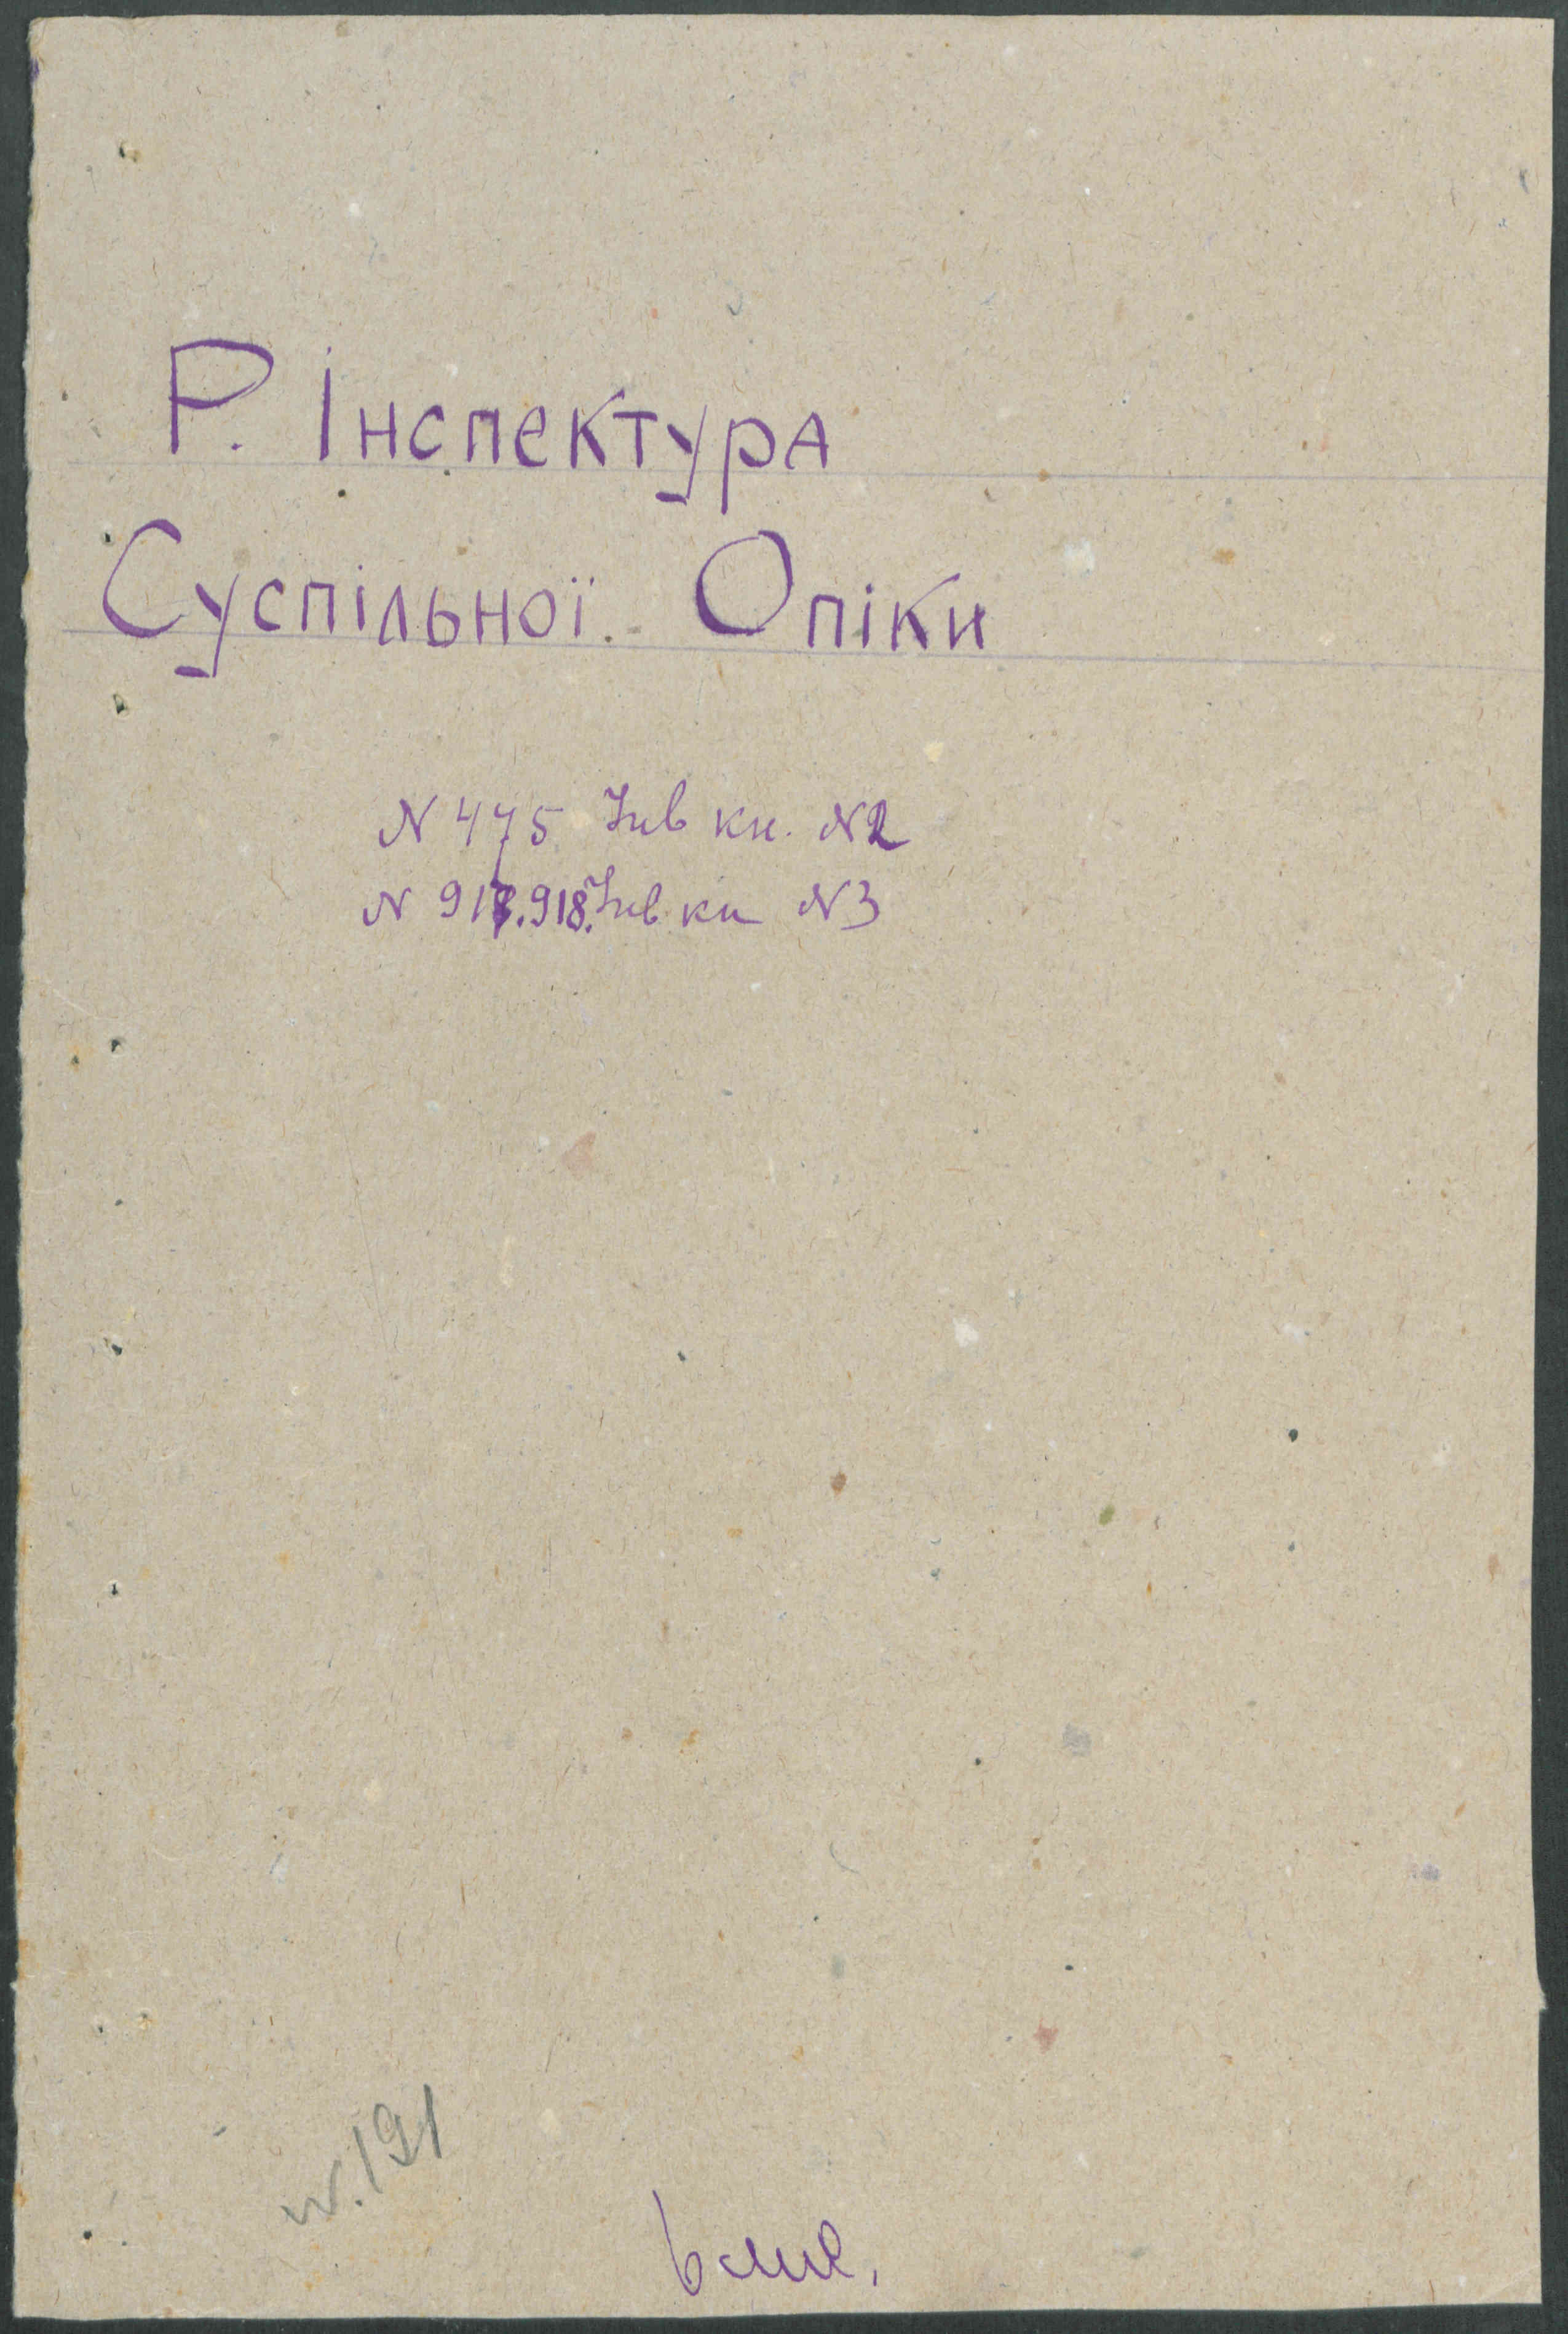 Р. Інспектура
Суспільної Опіки
N 475 Інв кн. N2
N 917.918. Інв кн N3
N.191